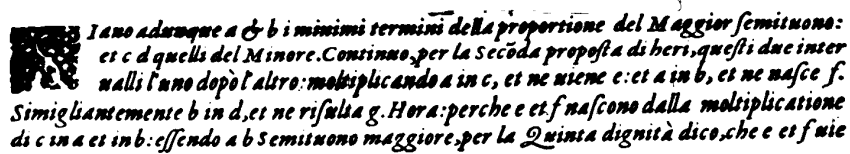 SIano adunque a & b i minimi termini della proportione del Maggior semituono:
et c d quelli del Minore. Continuo, per la Secōda proposta di heri, questi due inter
ualli l'uno dopò l'altro: moltiplicando a in c, et ne uiene e: et a in b, et ne nasce f.
Simigliantemente b in d, et ne risulta g. Hora: perche e et f nascono dalla moltiplicatione
di c in a et in b: essendo a b Semituono maggiore, per la Quinta dignità dico, che e et f uie